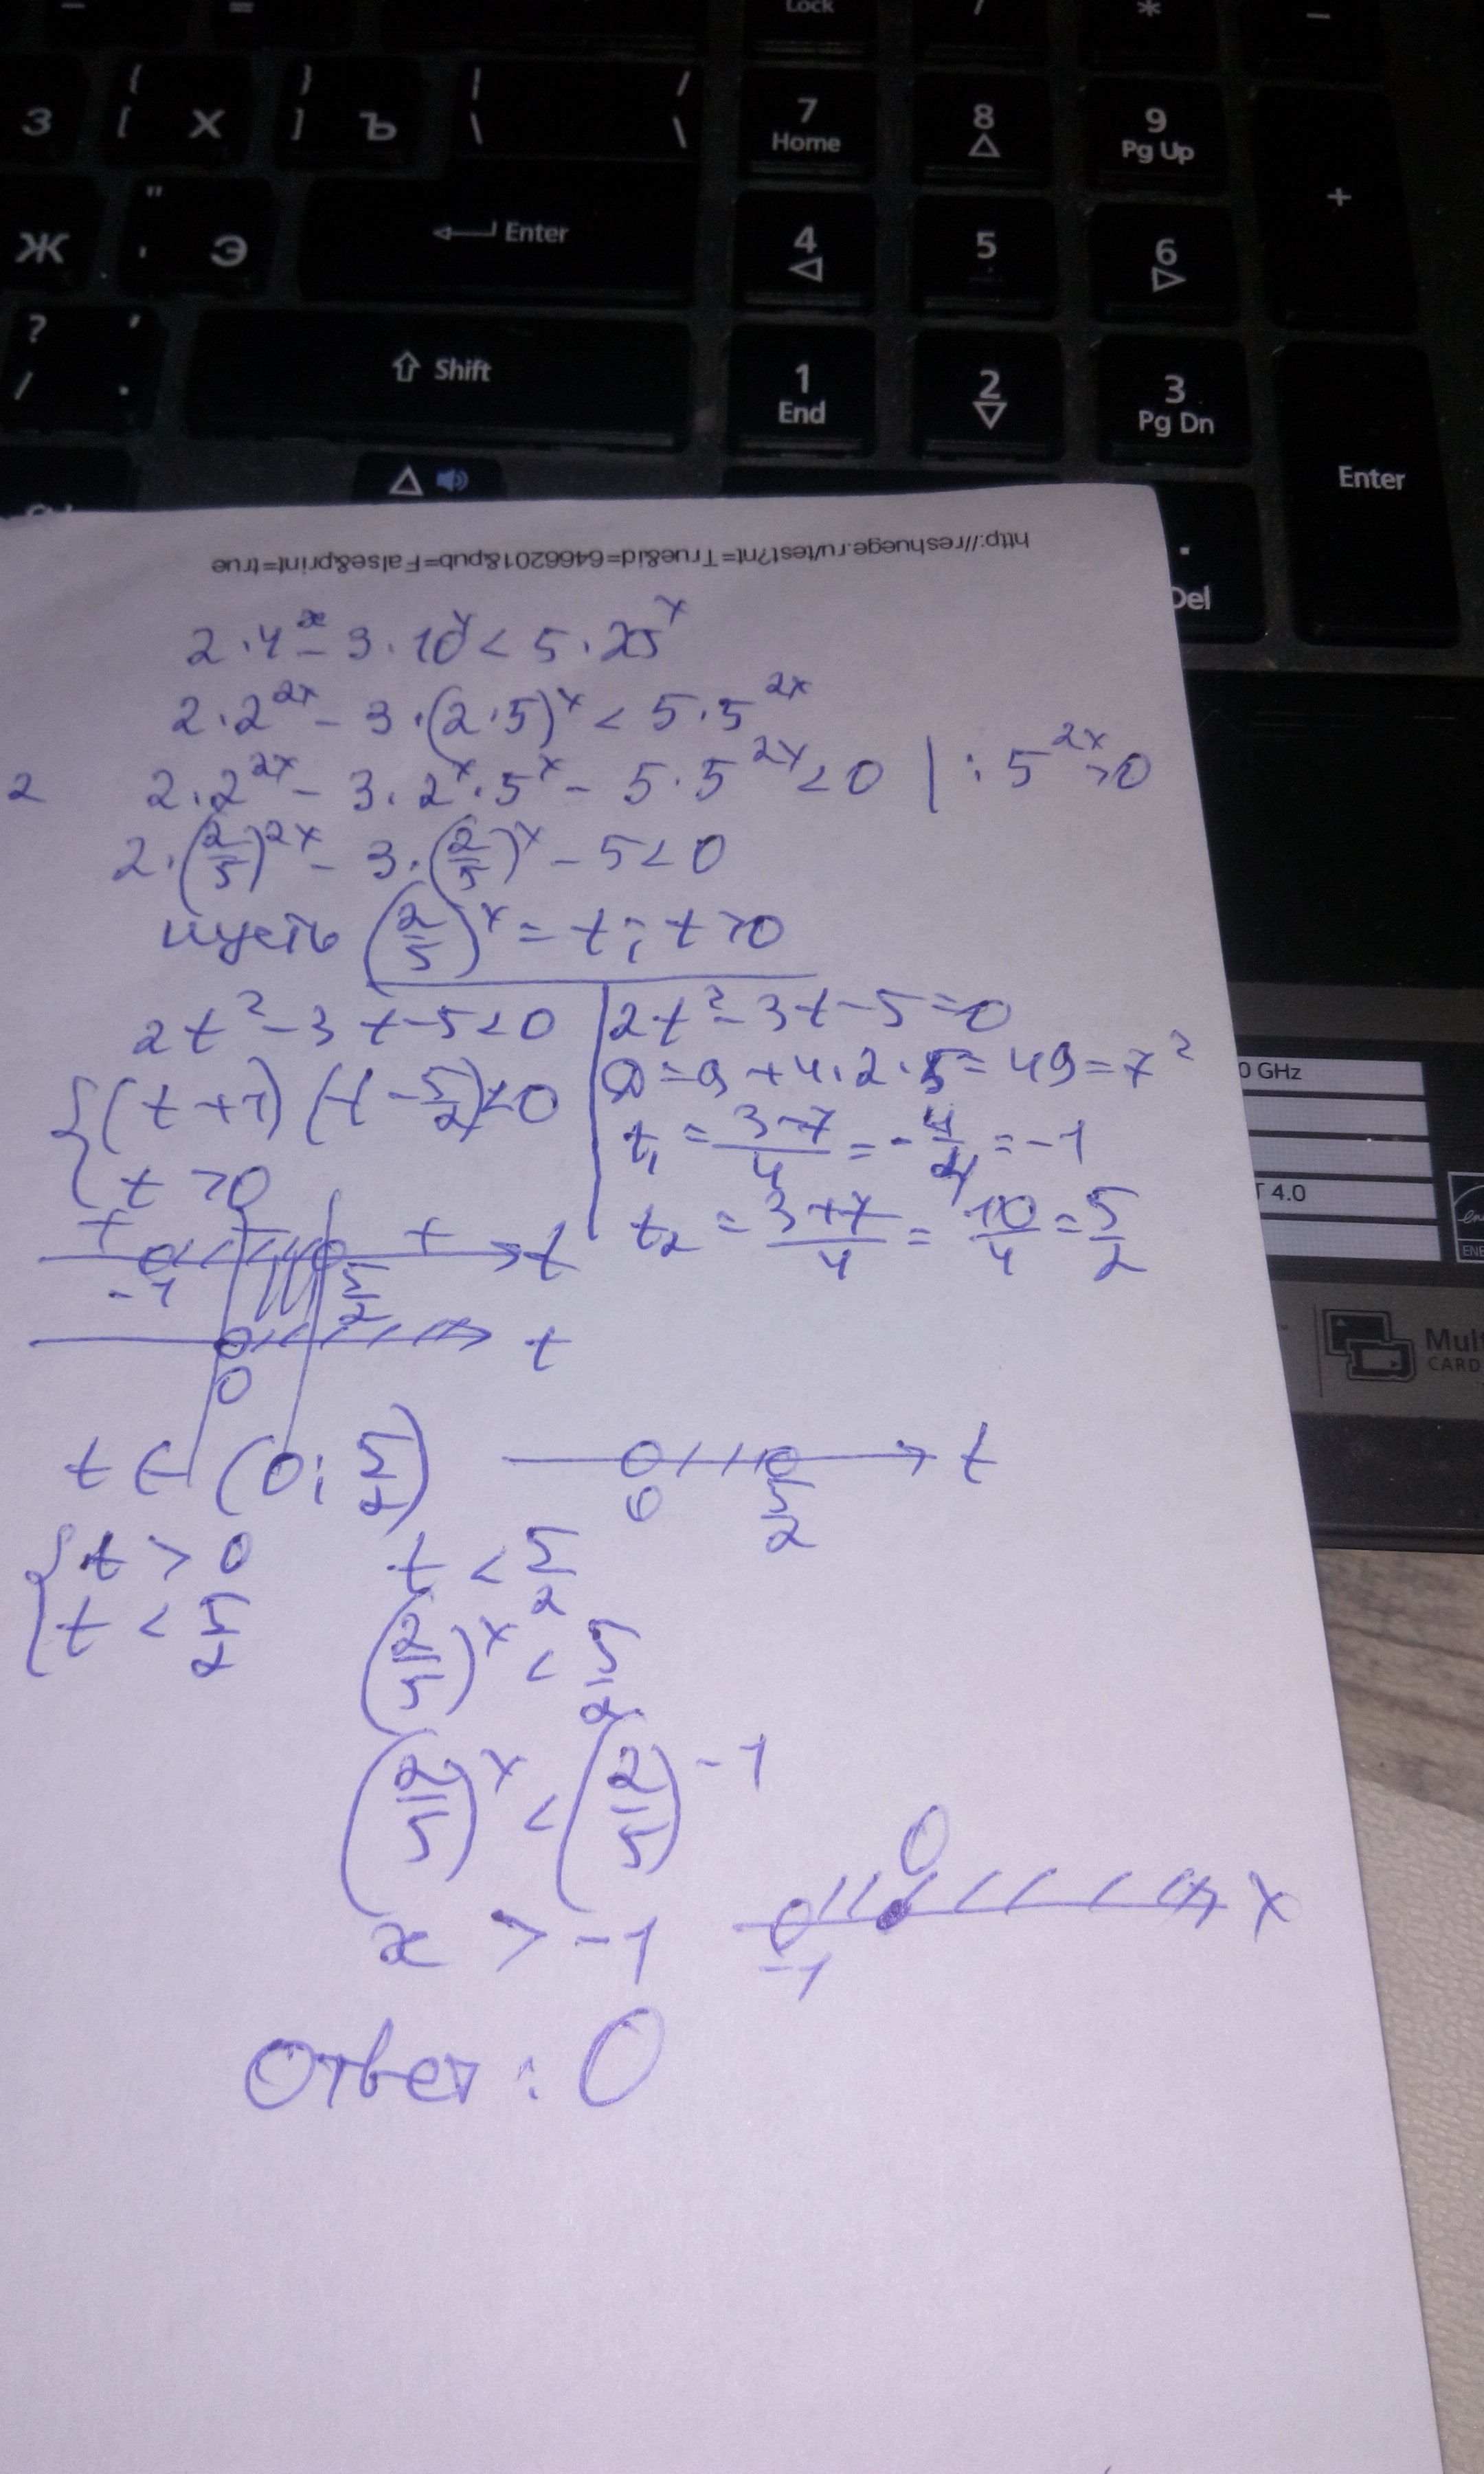 Lock / * –
З { [ Х } ] Ъ | \ / \ 7 Home 8 9 Pg Up +
Ж " ' Э Enter 4 5 6
? / , . Shift 1 End 2 3 Pg Dn Enter
. Del
http://reshuege.ru/test?nt=True&id=6466201&pub=False&print=true
2·4ˣ – 3·10ˣ < 5·25ˣ
2·2²ˣ – 3·(2·5)ˣ < 5·5²ˣ
2 2·2²ˣ – 3·2ˣ·5ˣ – 5·5²ˣ < 0 | : 5²ˣ > 0
2·(2/5)²ˣ – 3·(2/5)ˣ – 5 < 0
пусть (2/5)ˣ = t; t > 0
2t² – 3t – 5 < 0 | 2t² – 3t – 5 = 0
{ (t + 1)(t – 5/2) < 0 D = 9 + 4·2·5 = 49 = 7²
t > 0 t₁ = (3–7)/4 = –4/4 = –1
t₂ = (3+7)/4 = 10/4 = 5/2
+ + t
–1 5/2
t
0
t ∈ (0; 5/2) t
0 5/2
{ t > 0 t < 5/2
t < 5/2 (2/5)ˣ < 5/2
(2/5)ˣ < (2/5)⁻¹
x > –1 0 x
–1
Ответ: 0
0 GHz
T 4.0
Mul
CARD
ENE